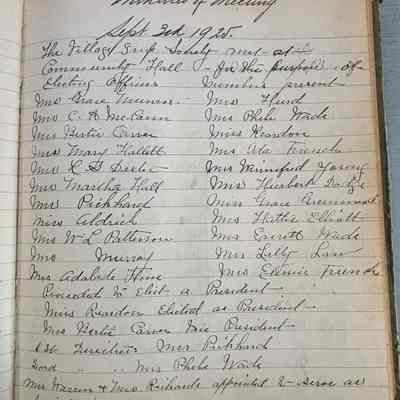 Minutes of Meeting
Sept 3rd 1925.
The Village Imp. Society met at
Community Hall for the purpose of
Electing officers Members present
Mrs Grace Munroe Mrs Hurd
Mrs C. A. McCann Mrs Phebe Wade
Mrs Bertie Carver Miss Reardon
Mrs Mary Hallett Mrs Ida French
Mrs H G Dexter Mrs Winnifred Young
Mrs Martha Hall Mrs Herbert Dodge
Mrs Pickhard Miss Grace
Miss Aldrich Mrs Hattie Elliott
Mrs W L Patterson Mrs Everett Wade
Mrs Murray Mrs Lilly Law
Mrs Adalade Hine Mrs French
Proceeded to Elect a President
Miss Reardon Elected as President
Mrs Bertie Carver Vice President
1st Directress Mrs Pickhard
2ond " " Mrs Phebe Wade
Mrs Warren & Mrs Richards appointed to serve as